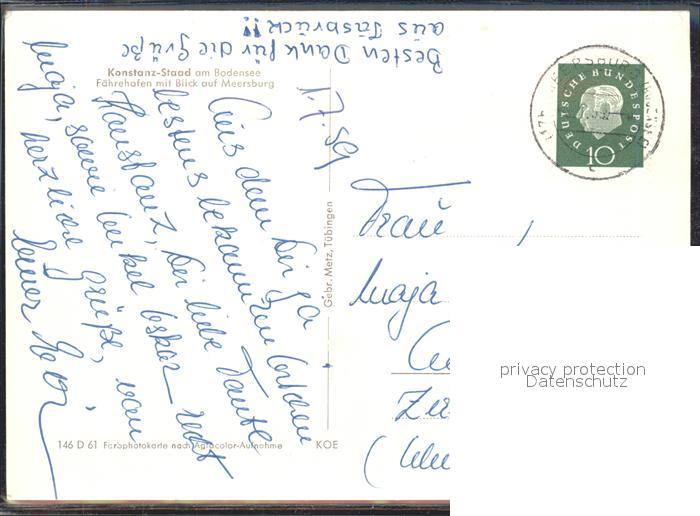 Besten Dank für die Grüße
aus Insbrück!!
Konstanz-Staad am Bodensee
Fährehafen mit Blick auf Meersburg
1.7.59
Aus dem Dir ja
bestens bekannten
Konstanz, Dir liebe Tante
Maja, sowie Onkel Oskar recht
herzliche Grüße, von
Gebr. Metz, Tübingen
146 D 61 Farbphotokarte nach Agfacolor-Aufnahme KOE
DEUTSCHE BUNDESPOST
10
Frau,
Maja
privacy protection
Datenschutz